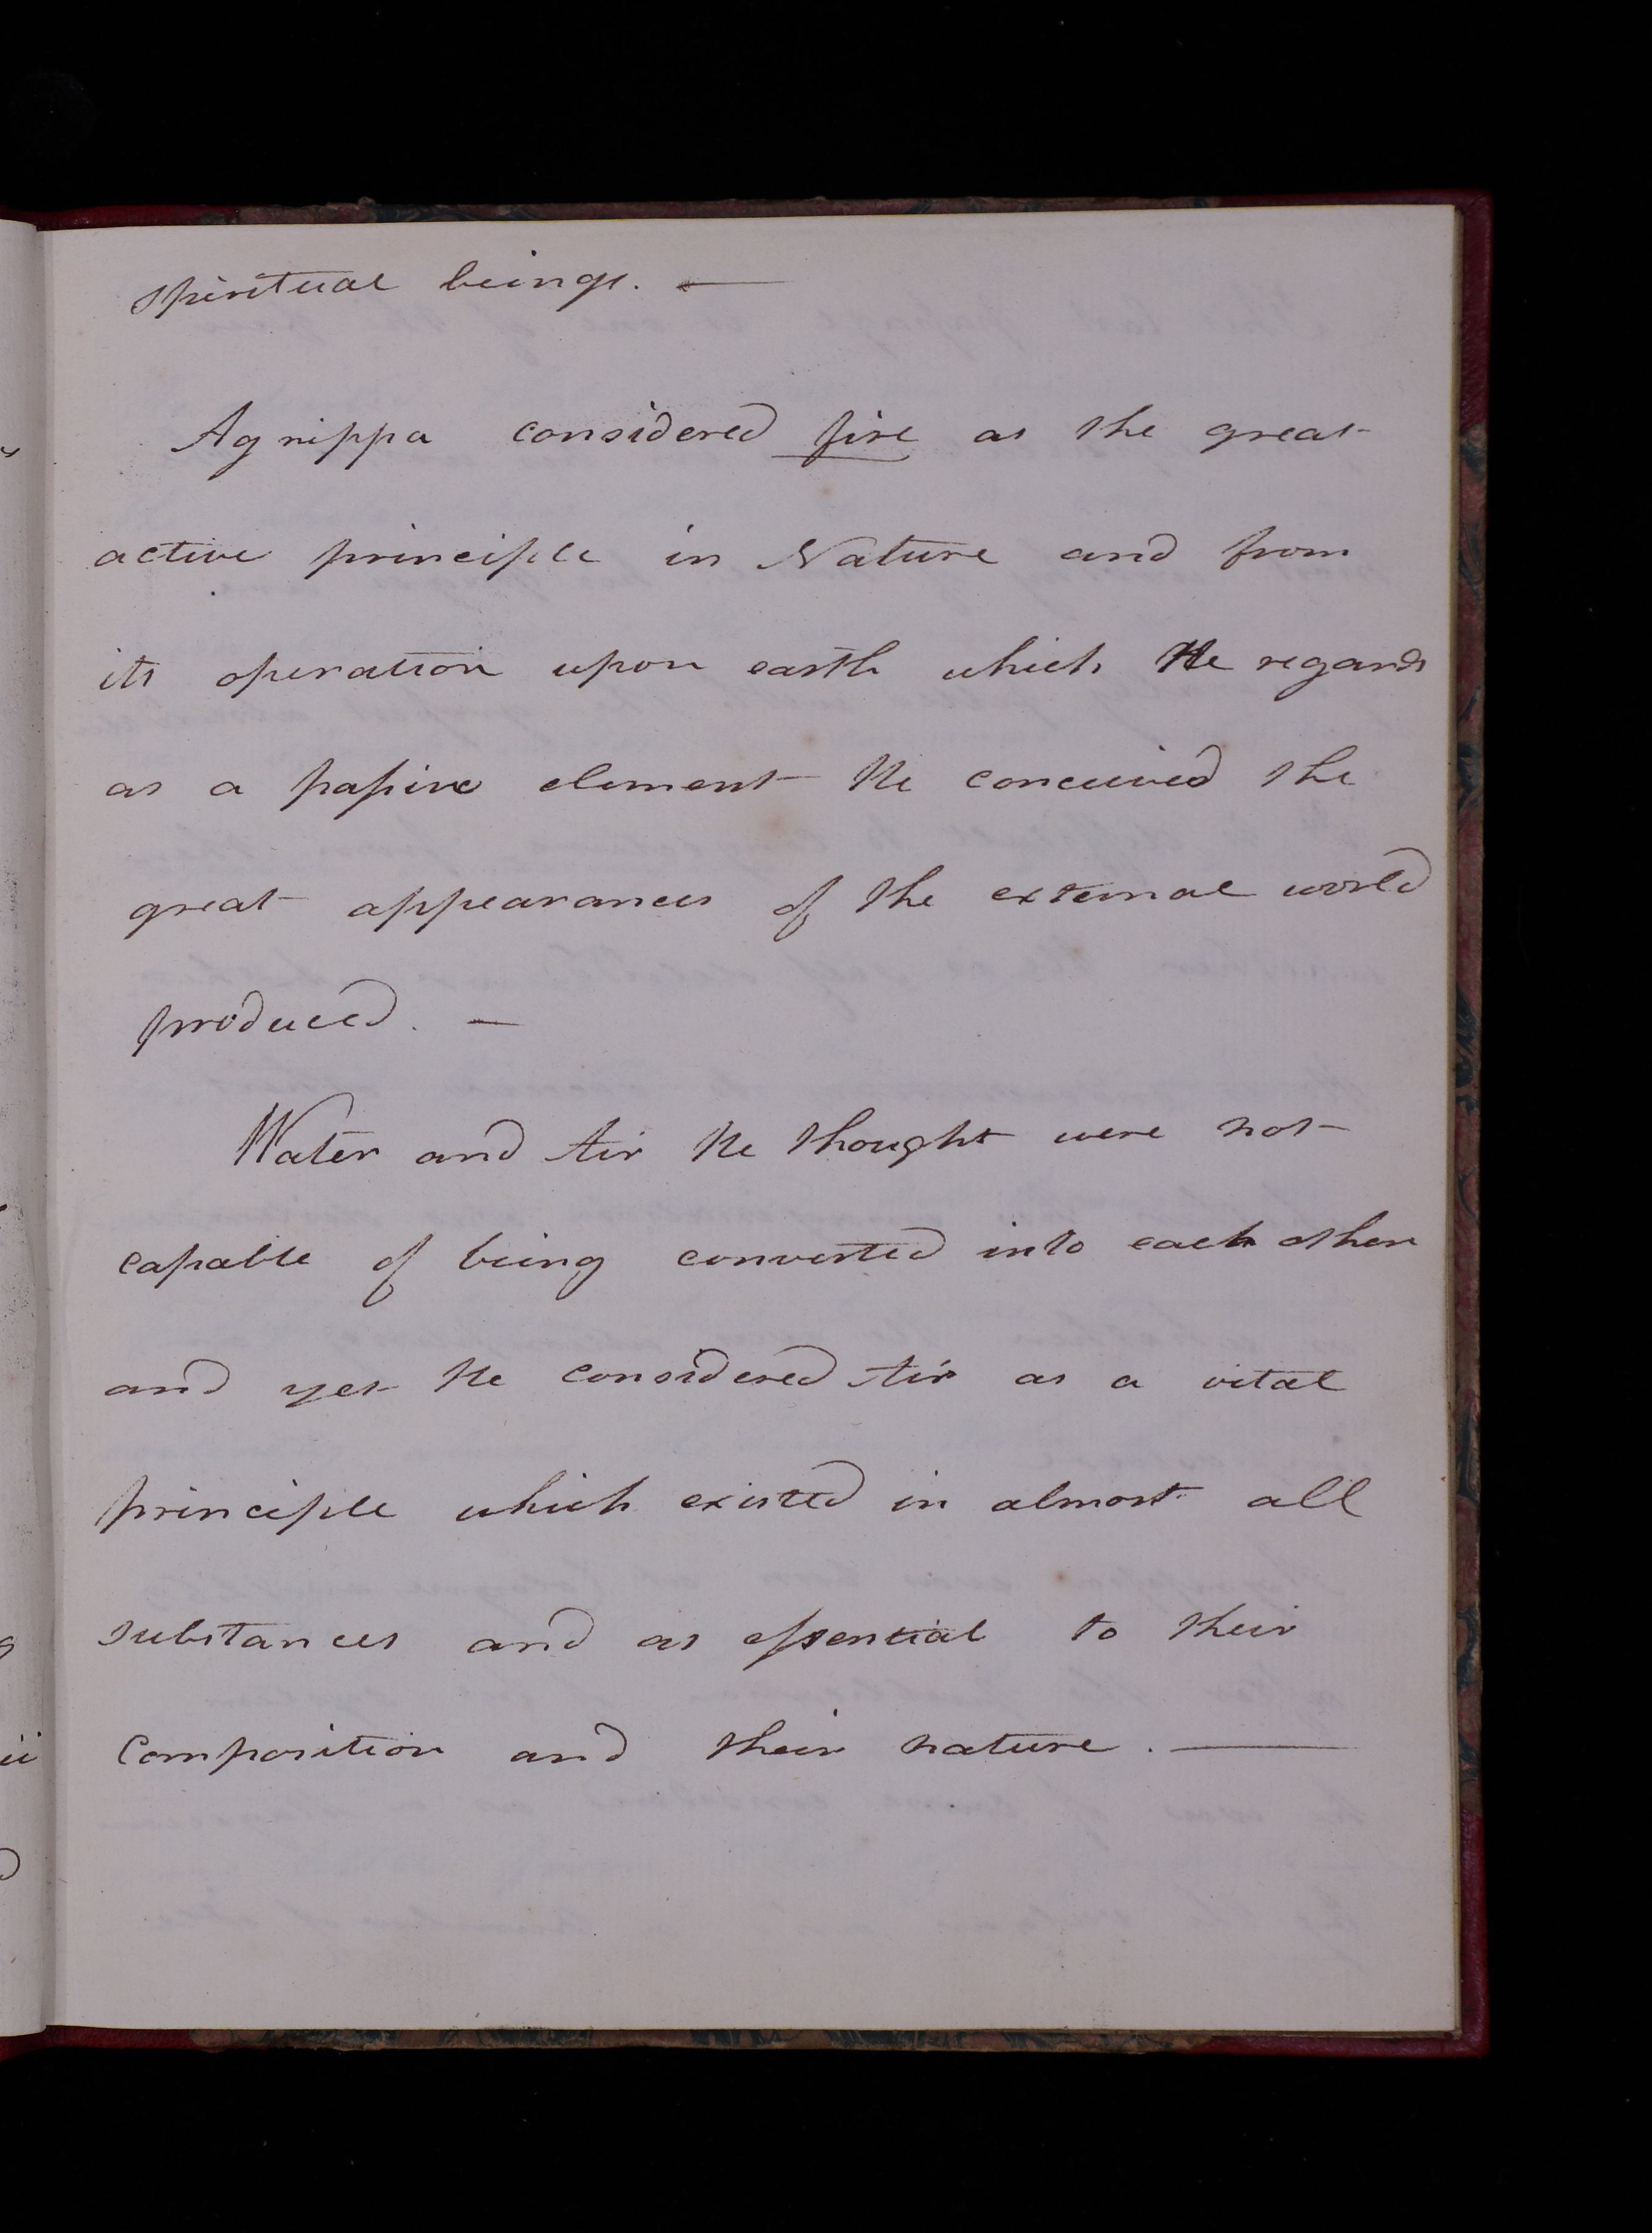 spiritual beings. —
Agrippa considered fire as the great
active principle in Nature and from
its operation upon earth which He regards
as a passive element He conceived the
great appearances of the external world
produced. —
Water and Air He thought were not
capable of being converted into each other
and yet He considered Air as a vital
principle which existed in almost all
substances and as essential to their
composition and their nature. —